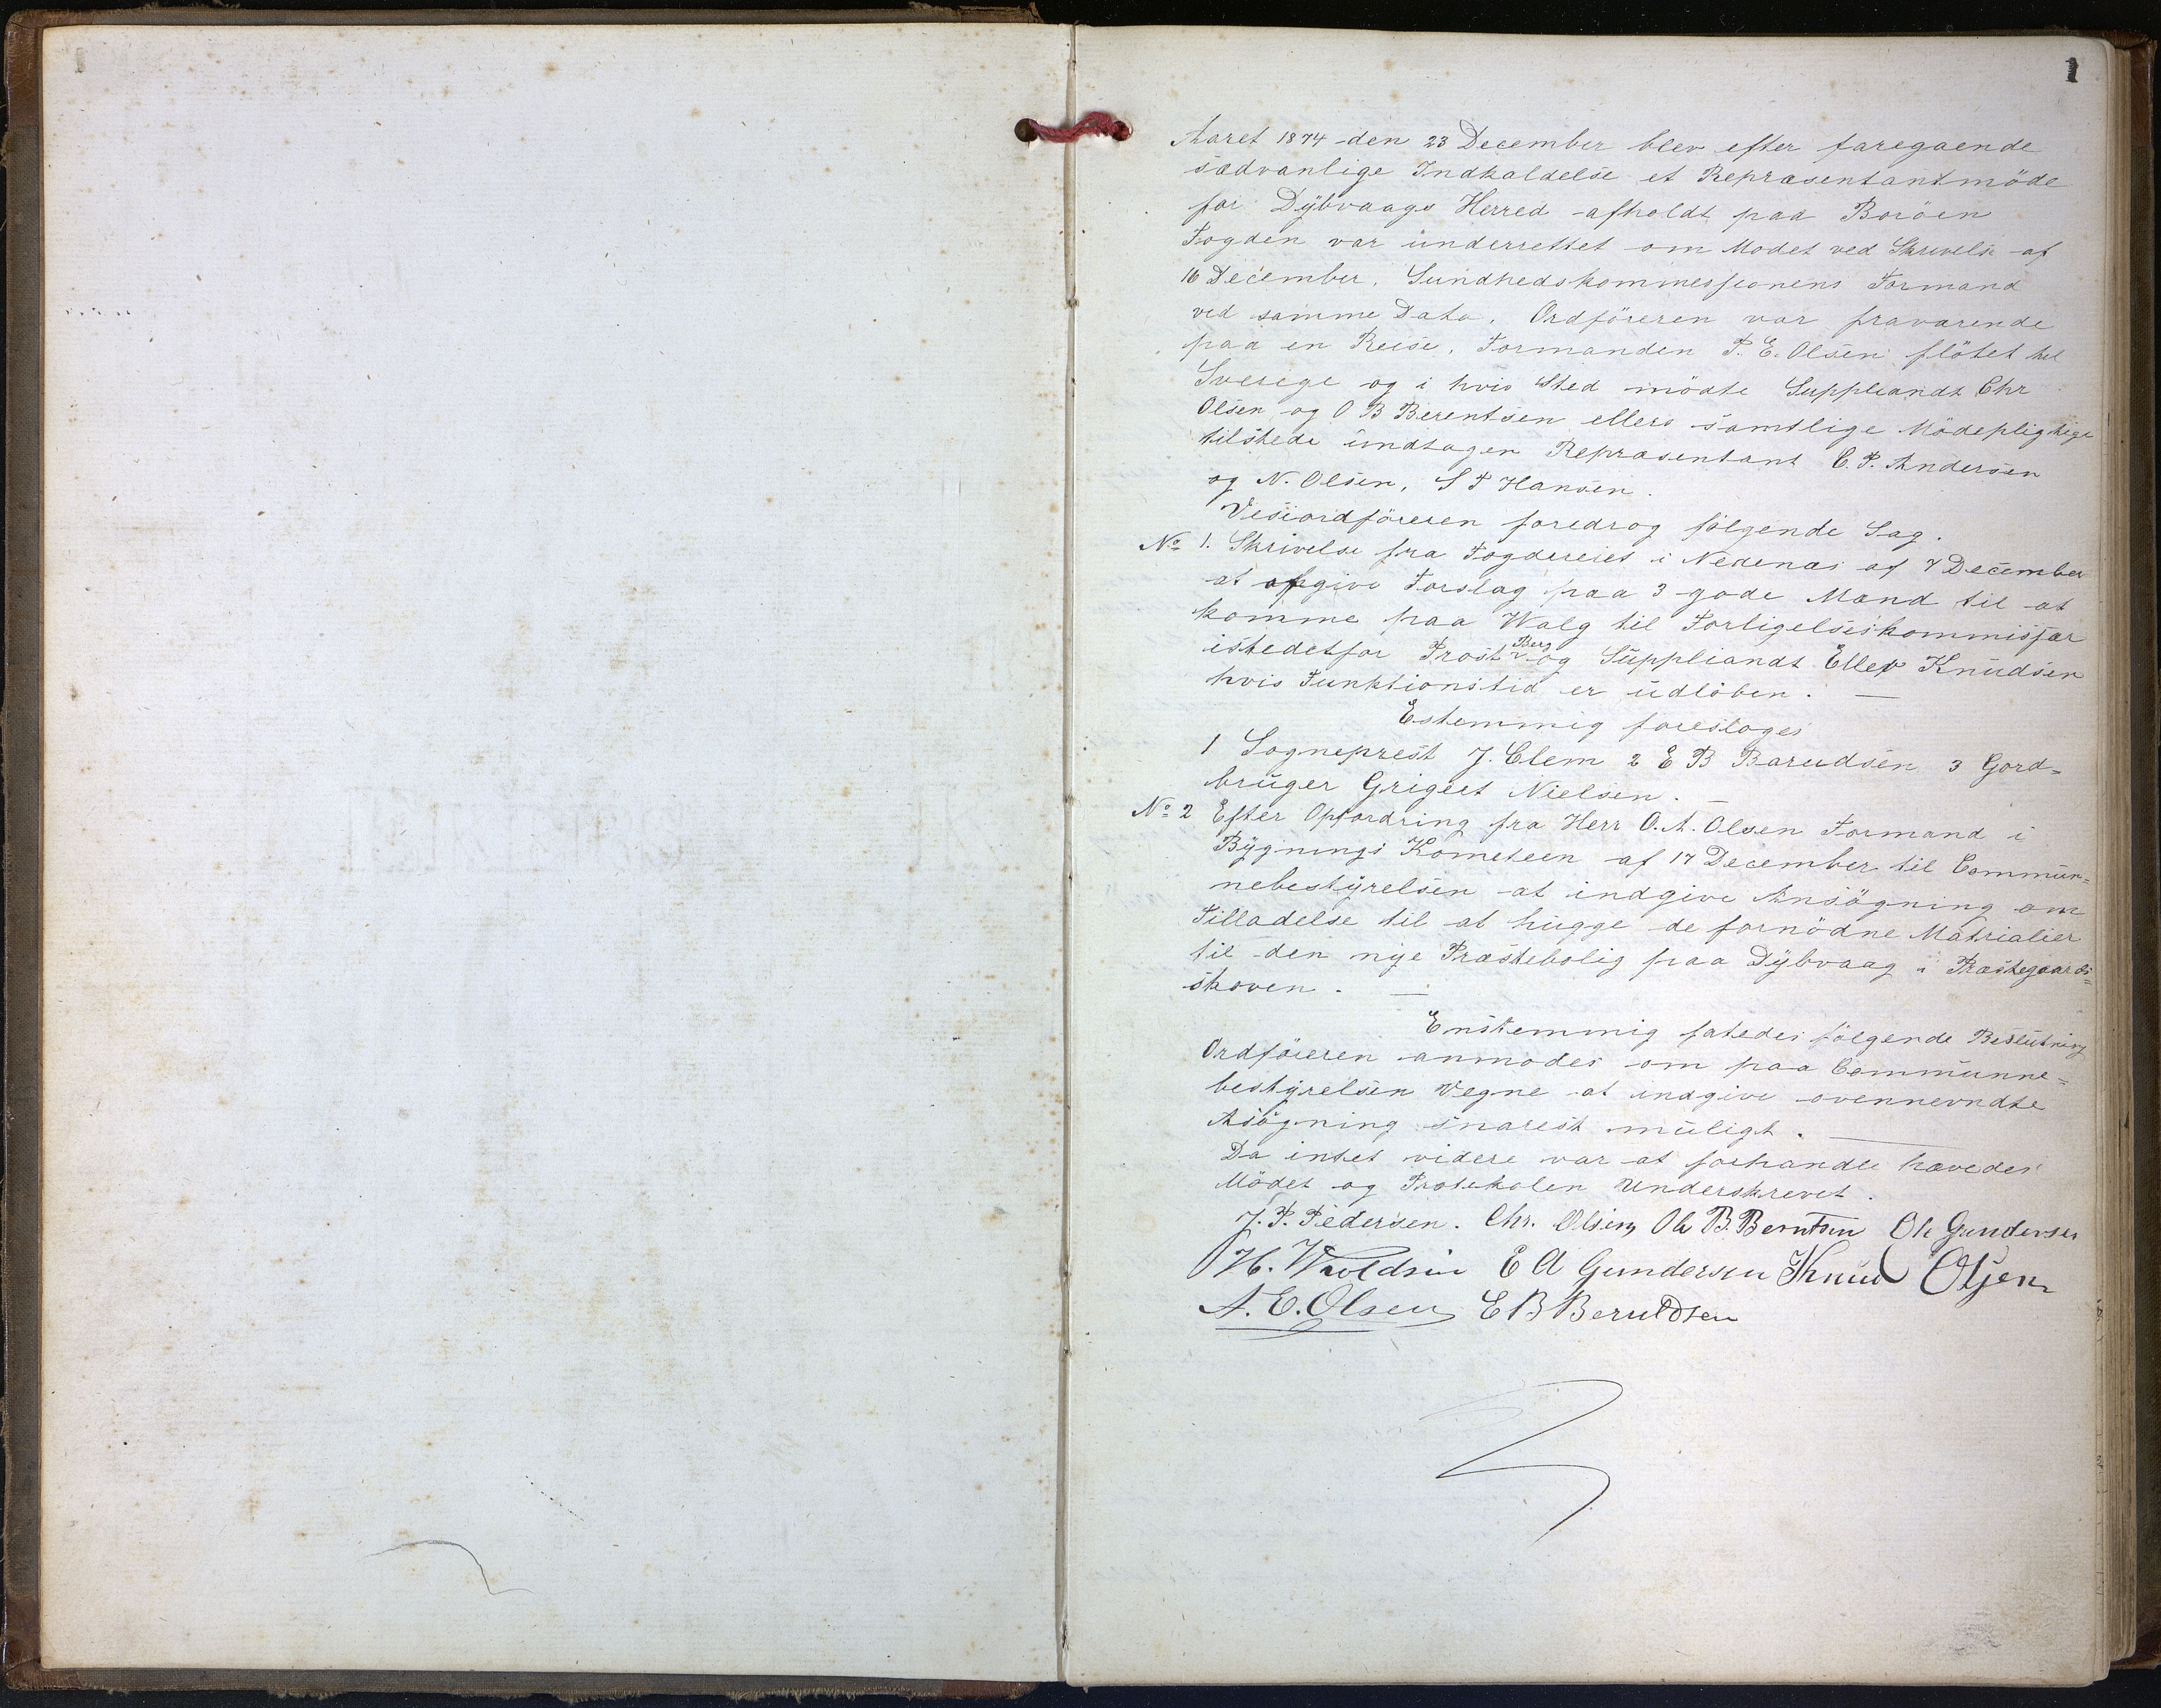 1
Aaret 1874 den 23 December blev efter faregaende
sædvanlige Indkaldelse et Repræsentantmöde
for Dÿbvaags Herred afholdt paa Boröen
Fogden var ünderrettet om Modet ved Skrivelse af
16 December, Sundhedskommessionens Formand
ved samme Dato. Ordföreren var fraværende
paa en Reise, Formanden P. E. Olsen flötet til
Sverege og i hvis Sted mödte Suppleandt Chr
Olsen og O B Berentsen ellers samtlige Mödepligtige
tilstede ündtagen Repræsentant C. P. Andersen
og N. Olsen, S T Hansen.
Visiordföreren foredrog fölgende Sag.
No 1. Skrivelse fra Fogderiet i Nedenæs af 7 December
at afgive Forslag paa 3 gode Mænd til at
komme paa Walg til Forligelseskommissær
istedetfor Prost Berg og Süppliandt Ellev Knüdsen
hvis Funktionstid er üdlöben. —
Estemmig foresloges
1 Sogneprest J. Clem 2 E B Barudsen 3 Gord=
brüger Grigert Nielsen. —
No 2 Efter Opfordring fra Herr O. A. Olsen Formand i
Bÿgnings Kometeen af 17 December til Commün=
nebestÿrelsen at indgive Ansögning om
Tilladelse til at hügge de fornödne Matrialier
til den nye Præstebolig paa Dÿbvaag i Præstegaards=
skoven. —
Enstemmig fatedes fölgende Beslütning
Ordföreren anmodes om paa Commünne=
bestÿrelsen Vegne at indgive ovennevndte
Asögning snarest müligt. —
Da intet videre var at forhandle hævedes
Mödet og Protekolen Underskrevet.
J. P. Pedersen. Chr. Olsen, Ole B. Berntsen Ole Gundersen
H. Wroldsen E A Gundersen Knud Olsen
A. E. Olsen E B Beruldsen